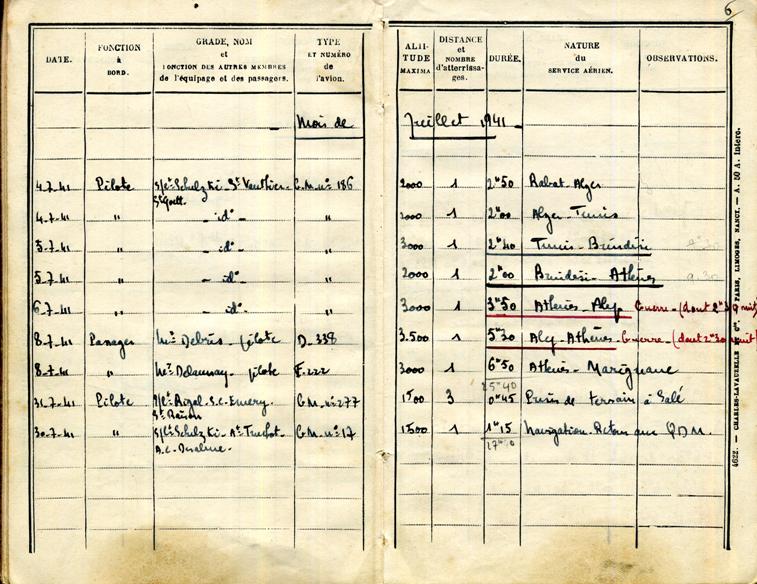 6
DATE. FONCTION à BORD. GRADE, NOM et FONCTION DES AUTRES MEMBRES de l'équipage et des passagers. TYPE ET NUMÉRO de l'avion. ALTI-TUDE MAXIMA DISTANCE et NOMBRE d'atterrissages. DURÉE. NATURE du SERVICE AÉRIEN. OBSERVATIONS.
Mois de Juillet 1941
4.7.41 Pilote S/Lt Schulzki - St Vauthier - G.M. n° 186 2000 1 2h50 Rabat - Alger
4.7.41 " - id° - " 2000 1 2h00 Alger - Tunis
5.7.41 " - id° - " 3000 1 2h40 Tunis - Brindisi
5.7.41 " - id° - " 2000 1 2h00 Brindisi - Athènes
6.7.41 " - id° - " 3000 1 3h50 Athènes - Alep Guerre - (dont 2h30 nuit)
8.7.41 Passager Mr Debris - pilote D. 338 3.500 1 5h30 Alep - Athènes - Guerre - (dont 2h30 nuit)
8.7.41 " Mr Delaunay - pilote F. 222 3000 1 6h50 Athènes - Marignane
25h40
Pilote Rigal - S.C. Emery. G.M. n° 277 1500 3 0h45 Prise de terrain à Salé
30.7.41 " S/Lt Schulzki - At Truchot - G.M. n° 17 1500 1 1h15 Navigation - Retour au QDM.
A.C.
4622. — CHARLES-LAVAUZELLE & Cie. PARIS, LIMOGES, NANCY. — A. 50 A. Interc.